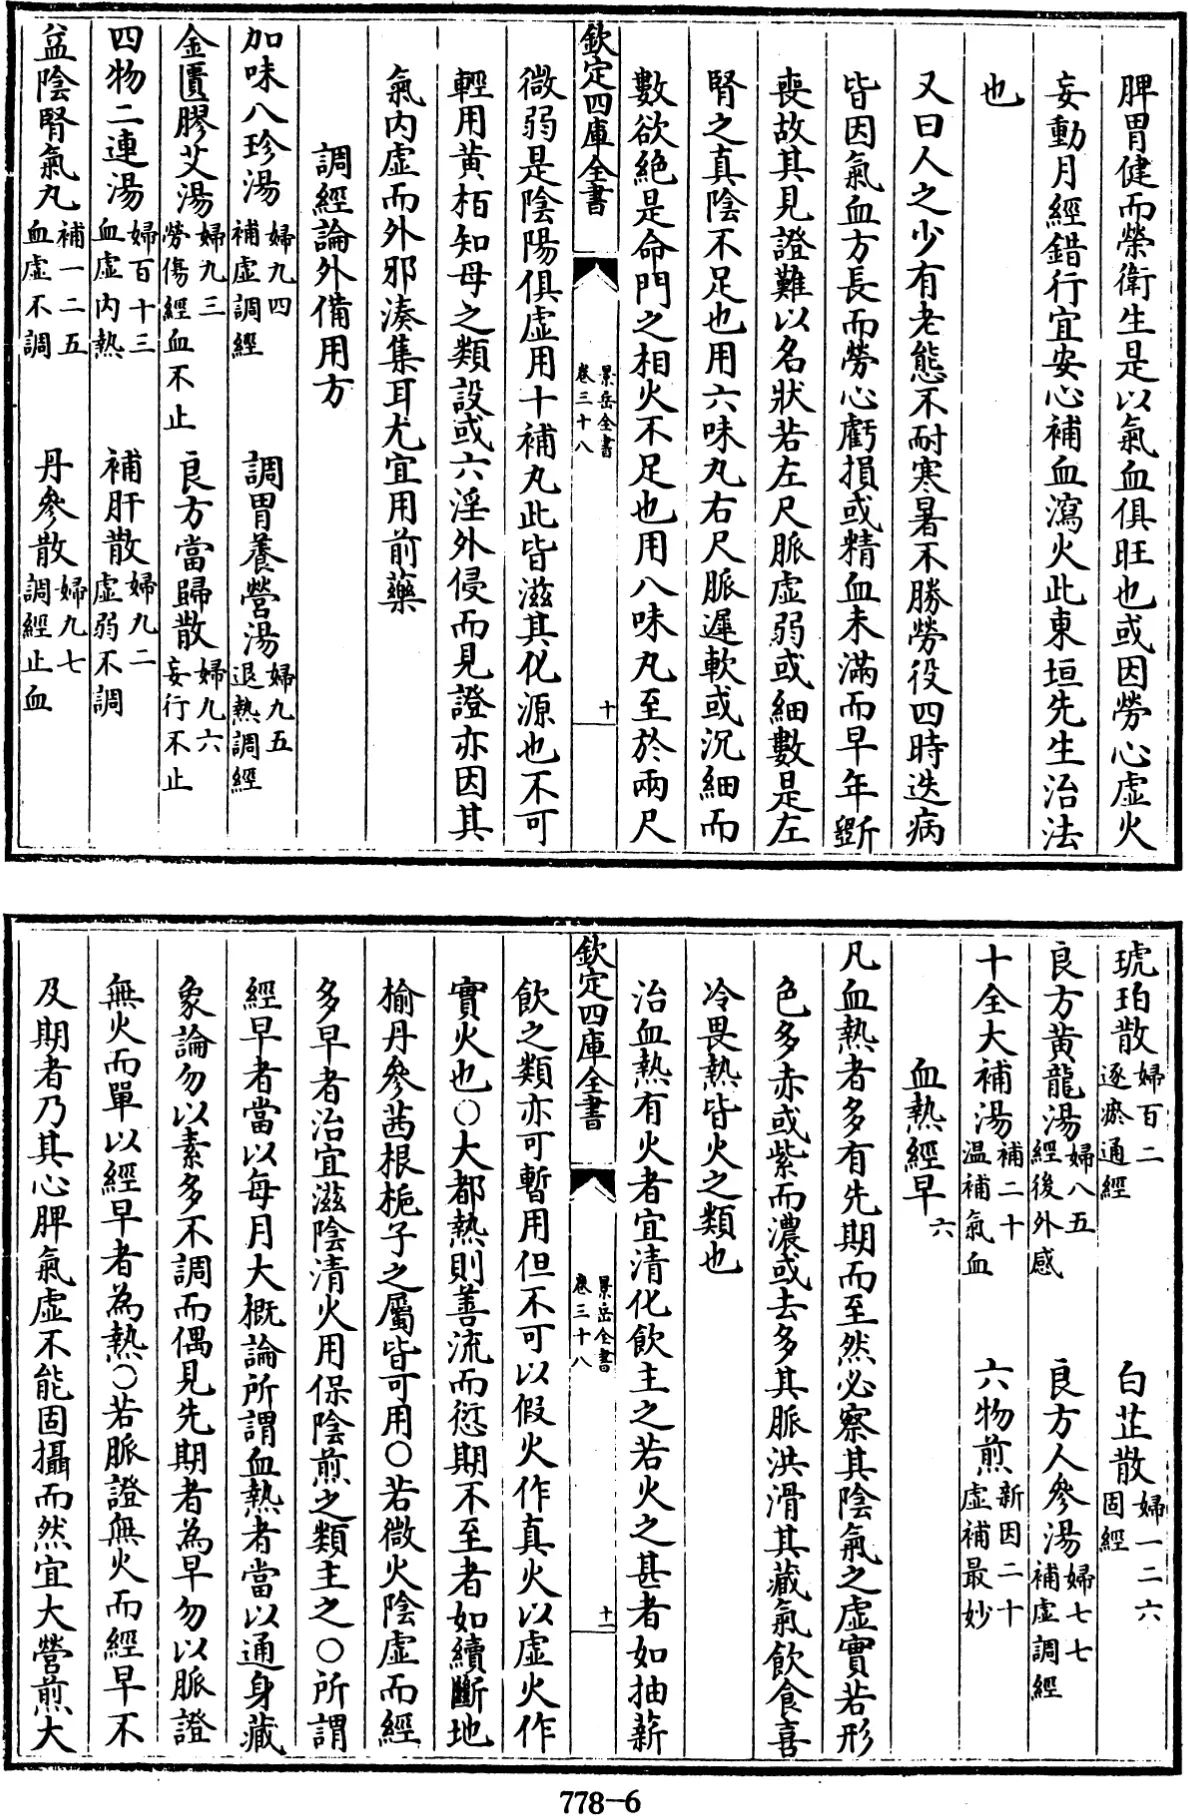 脾胃健而榮衛生是以氣血俱旺也或因勞心虛火
妄動月經錯行宜安心補血瀉火此東垣先生治法
也
又曰人之少有老態不耐寒暑不勝勞役四時迭病
皆因氣血方長而勞心虧損或精血未滿而早年斵
喪故其見證難以名狀若左尺脈虛弱或細數是左
腎之真陰不足也用六味丸右尺脈遲軟或沉細而
數欲絕是命門之相火不足也用八味丸至於兩尺
欽定四庫全書 景岳全書 卷三十八 十
微弱是陰陽俱虛用十補丸此皆滋其化源也不可
輕用黄栢知母之類設或六淫外侵而見證亦因其
氣内虛而外邪湊集耳尤宜用前藥
調經論外備用方
加味八珍湯婦九四補虛調經 調胃養營湯婦九五退熱調經
金匱膠艾湯婦九三勞傷經血不止 良方當歸散婦九六妄行不止
四物二連湯婦百十三血虛内熱 補肝散婦九二虛弱不調
益陰腎氣丸補一二五血虛不調 丹參散婦九七調經止血
琥珀散婦百二逐瘀通經 白芷散婦一二六固經
良方黄龍湯婦八五經後外感 良方人參湯婦七七補虛調經
十全大補湯補二十温補氣血 六物煎新因二十虛補最妙
血熱經早六
凡血熱者多有先期而至然必察其陰氣之虛實若形
色多赤或紫而濃或去多其脈洪滑其藏氣飲食喜
冷畏熱皆火之類也
治血熱有火者宜清化飲主之若火之甚者如抽薪
欽定四庫全書 景岳全書 卷三十八 十一
飲之類亦可暫用但不可以假火作真火以虛火作
實火也○大都熱則善流而愆期不至者如續斷地
榆丹參茜根梔子之屬皆可用○若微火陰虛而經
多早者治宜滋陰清火用保陰煎之類主之○所謂
經早者當以每月大概論所謂血熱者當以通身藏
象論勿以素多不調而偶見先期者為早勿以脈證
無火而單以經早者為熱○若脈證無火而經早不
及期者乃其心脾氣虛不能固攝而然宜大營煎大
778-6